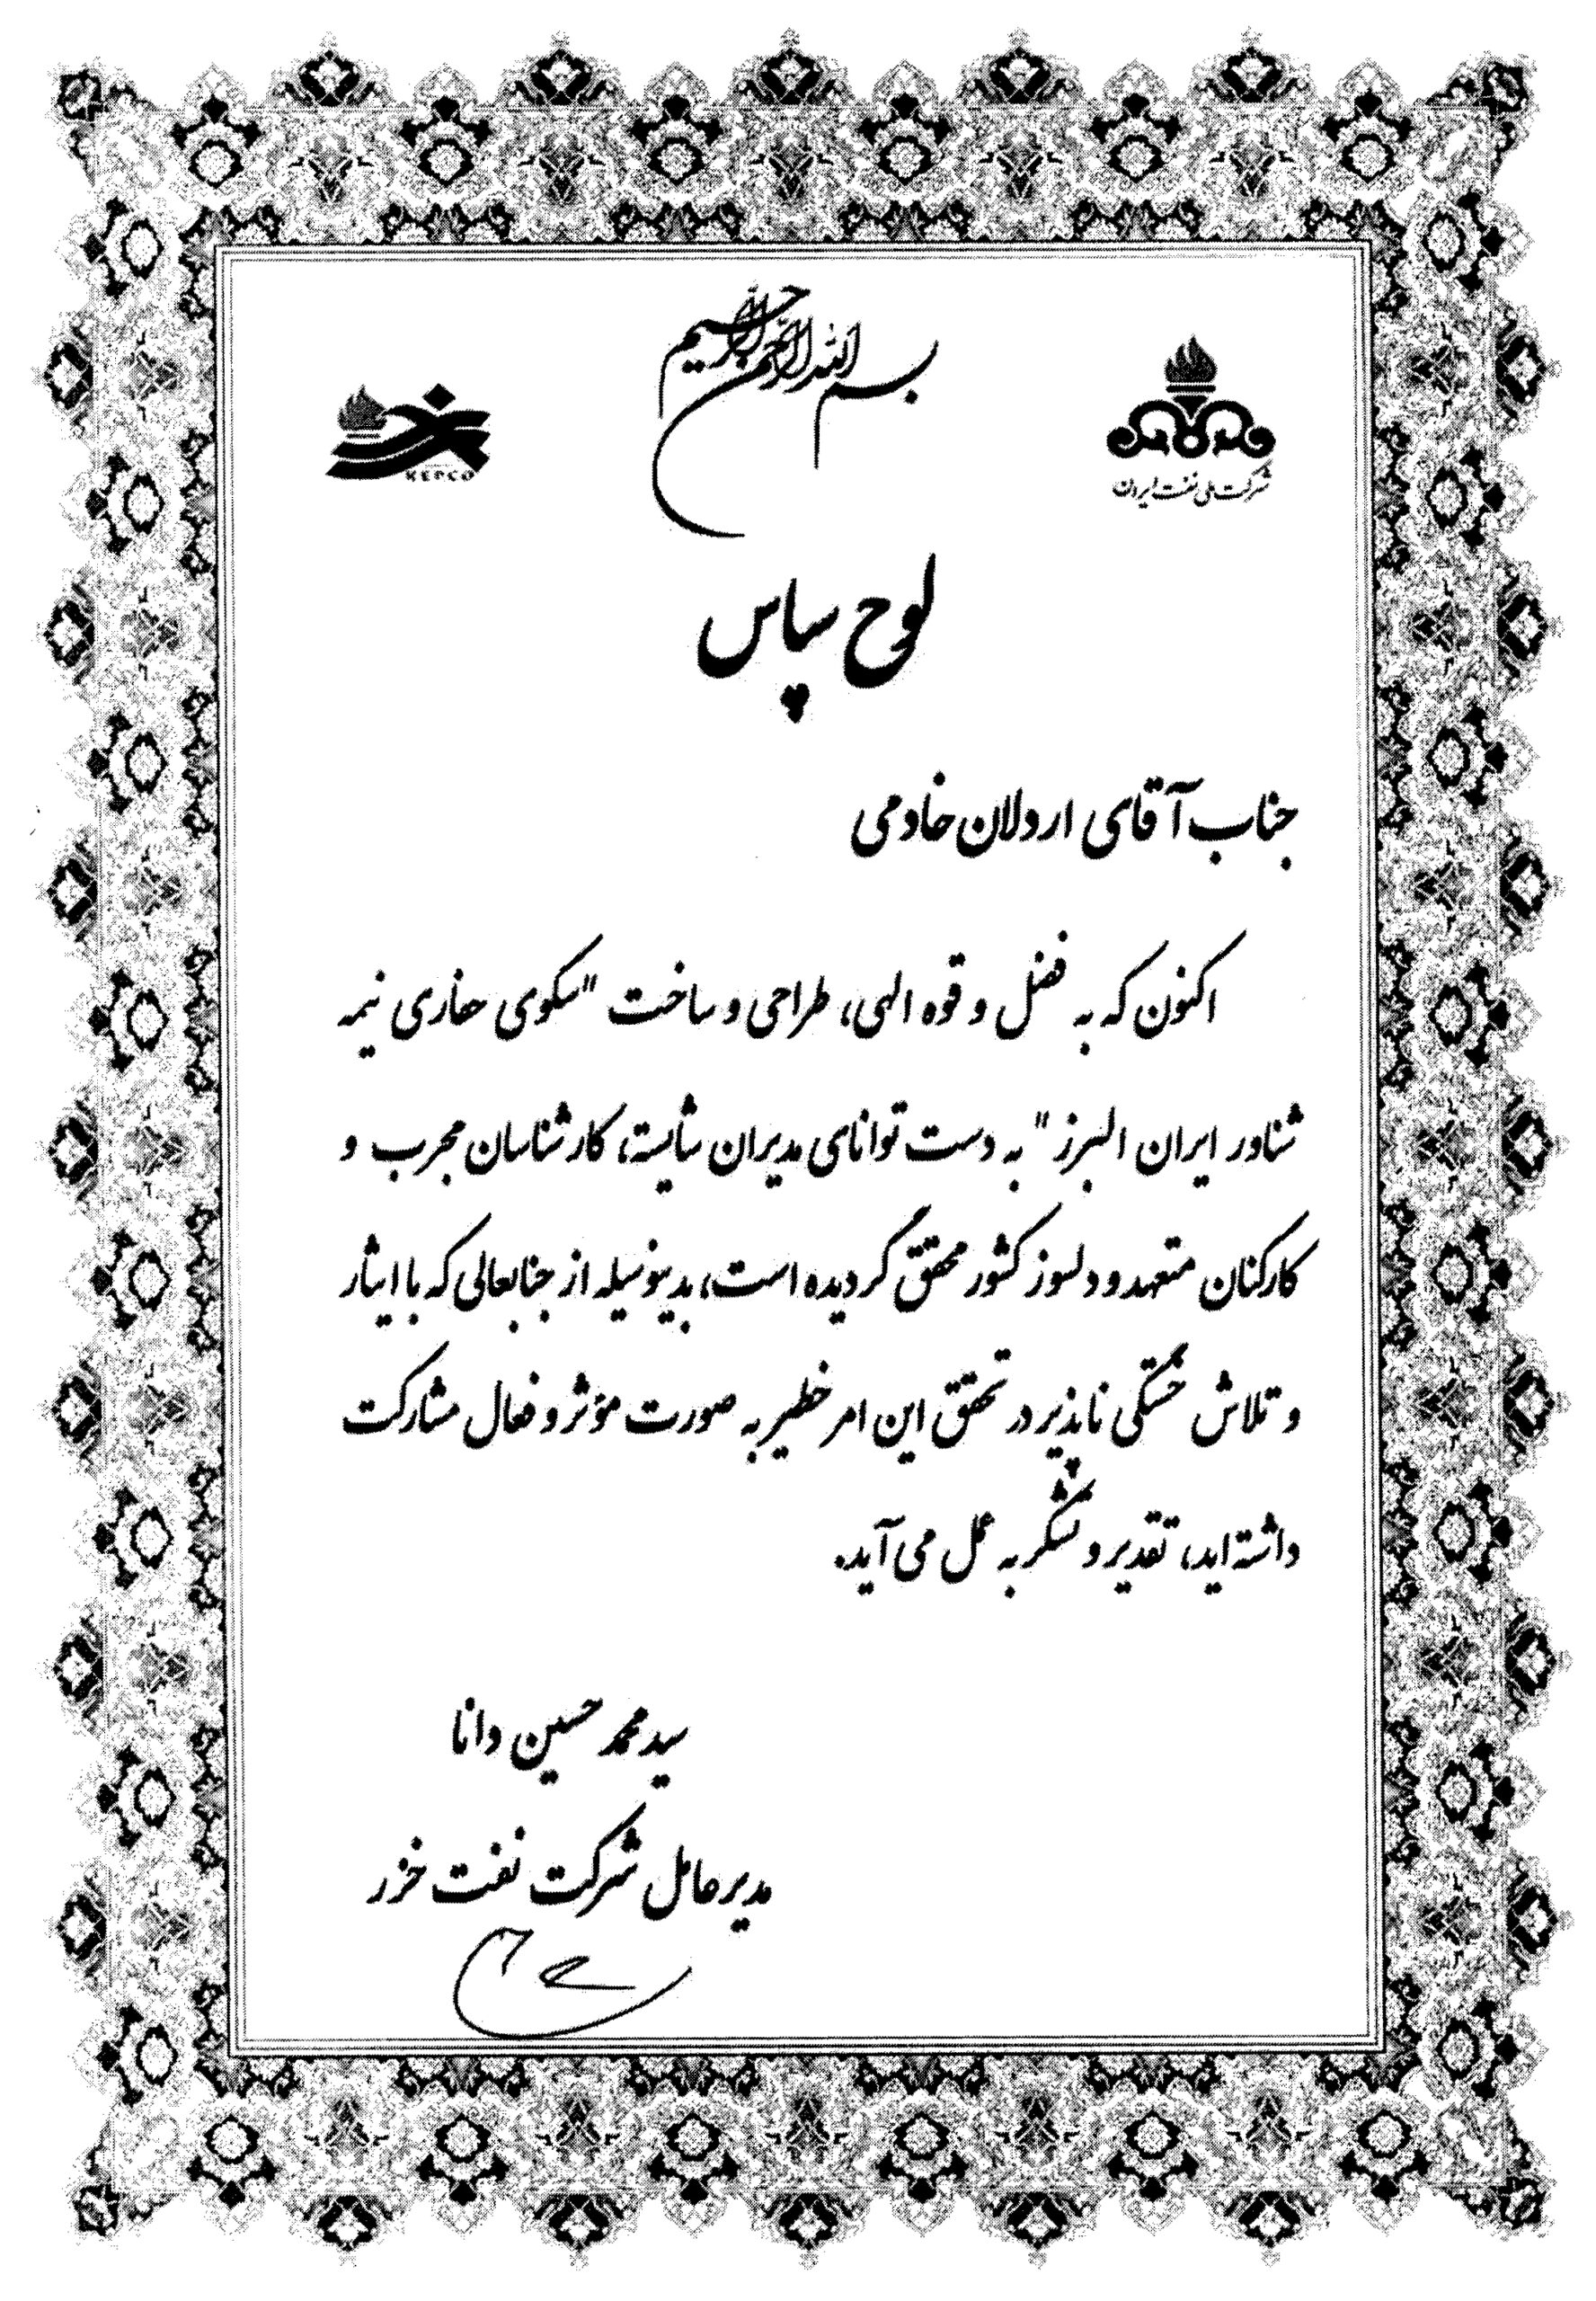 بسم الله الرحمن الرحیم
KEPCO
شرکت ملی نفت ایران
لوح سپاس
جناب آقای اردلان خادمی
اکنون که به فضل و قوه الهی، طراحی و ساخت "سکوی حفاری نیمه
شناور ایران البرز" به دست توانای مدیران شایسته، کارشناسان مجرب و
کارکنان متعهد و دلسوز کشور محقق گردیده است، بدینوسیله از جنابعالی که با ایثار
و تلاش خستگی ناپذیر در تحقق این امر خطیر به صورت مؤثر و فعال مشارکت
داشته اید، تقدیر و تشکر به عمل می آید.
سید محمد حسین دانا
مدیر عامل شرکت نفت خزر